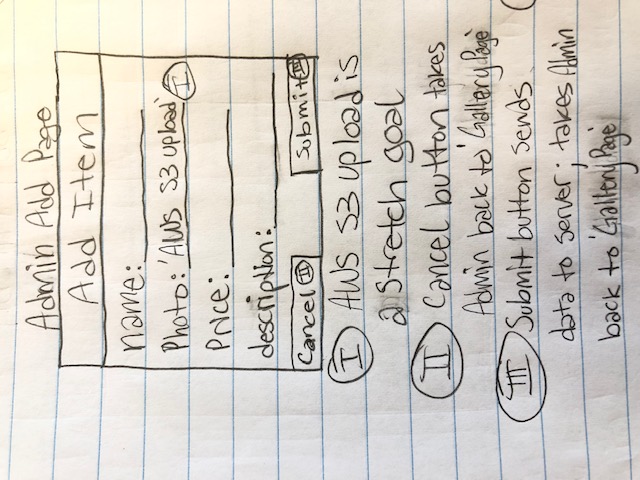 Admin Add Page
Add Item
name:
Photo: 'AWS S3 upload' I
Price:
description:
Cancel II Submit III
I AWS S3 upload is
a stretch goal
II Cancel button takes
Admin back to 'Gallery Page'
III Submit button sends
data to server; takes Admin
back to 'Gallery Page'